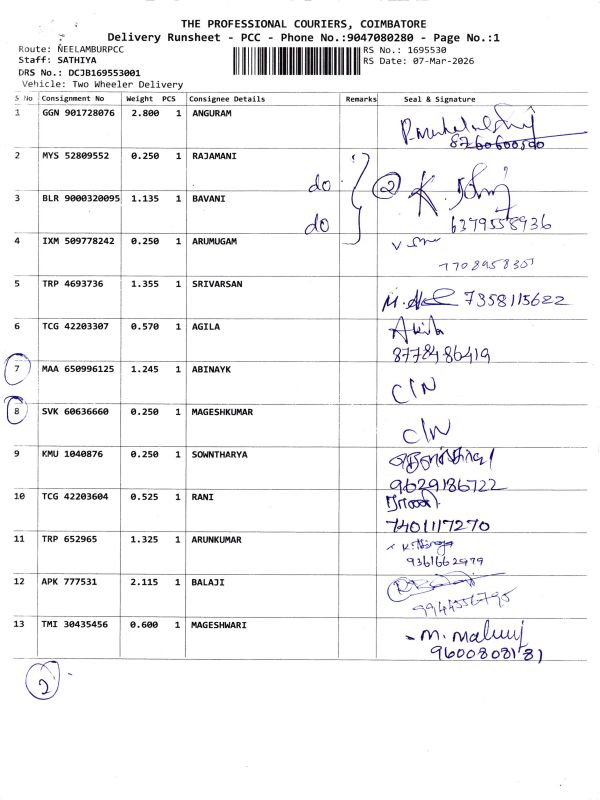 THE PROFESSIONAL COURIERS, COIMBATORE
Delivery Runsheet - PCC - Phone No.:9047080280 - Page No.:1
Route: NEELAMBURPCC
RS No.: 1695530
Staff: SATHIYA
RS Date: 07-Mar-2026
DRS No.: DCJB169553001
Vehicle: Two Wheeler Delivery
S No Consignment No Weight PCS Consignee Details Remarks Seal & Signature
1 GGN 901728076 2.800 1 ANGURAM
8760600500
2 MYS 52809552 0.250 1 RAJAMANI
do 2 K.
3 BLR 9000320095 1.135 1 BAVANI
do 6379558936
4 IXM 509778242 0.250 1 ARUMUGAM
7708958307
5 TRP 4693736 1.355 1 SRIVARSAN
7358115622
6 TCG 42203307 0.570 1 AGILA
8778486419
7 MAA 650996125 1.245 1 ABINAYK
C/N
8 SVK 60636660 0.250 1 MAGESHKUMAR
C/N
9 KMU 1040876 0.250 1 SOWNTHARYA
9629186722
10 TCG 42203604 0.525 1 RANI
7401117270
11 TRP 652965 1.325 1 ARUNKUMAR
9361662979
12 APK 777531 2.115 1 BALAJI
9944556795
13 TMI 30435456 0.600 1 MAGESHWARI
9600808181
2